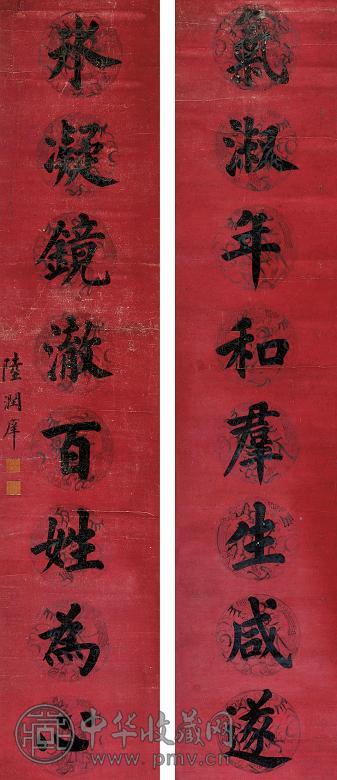 氣淑年和羣生咸遂
氷凝鏡澈百姓為
陸潤庠
中华收藏网
www.pmv.cn